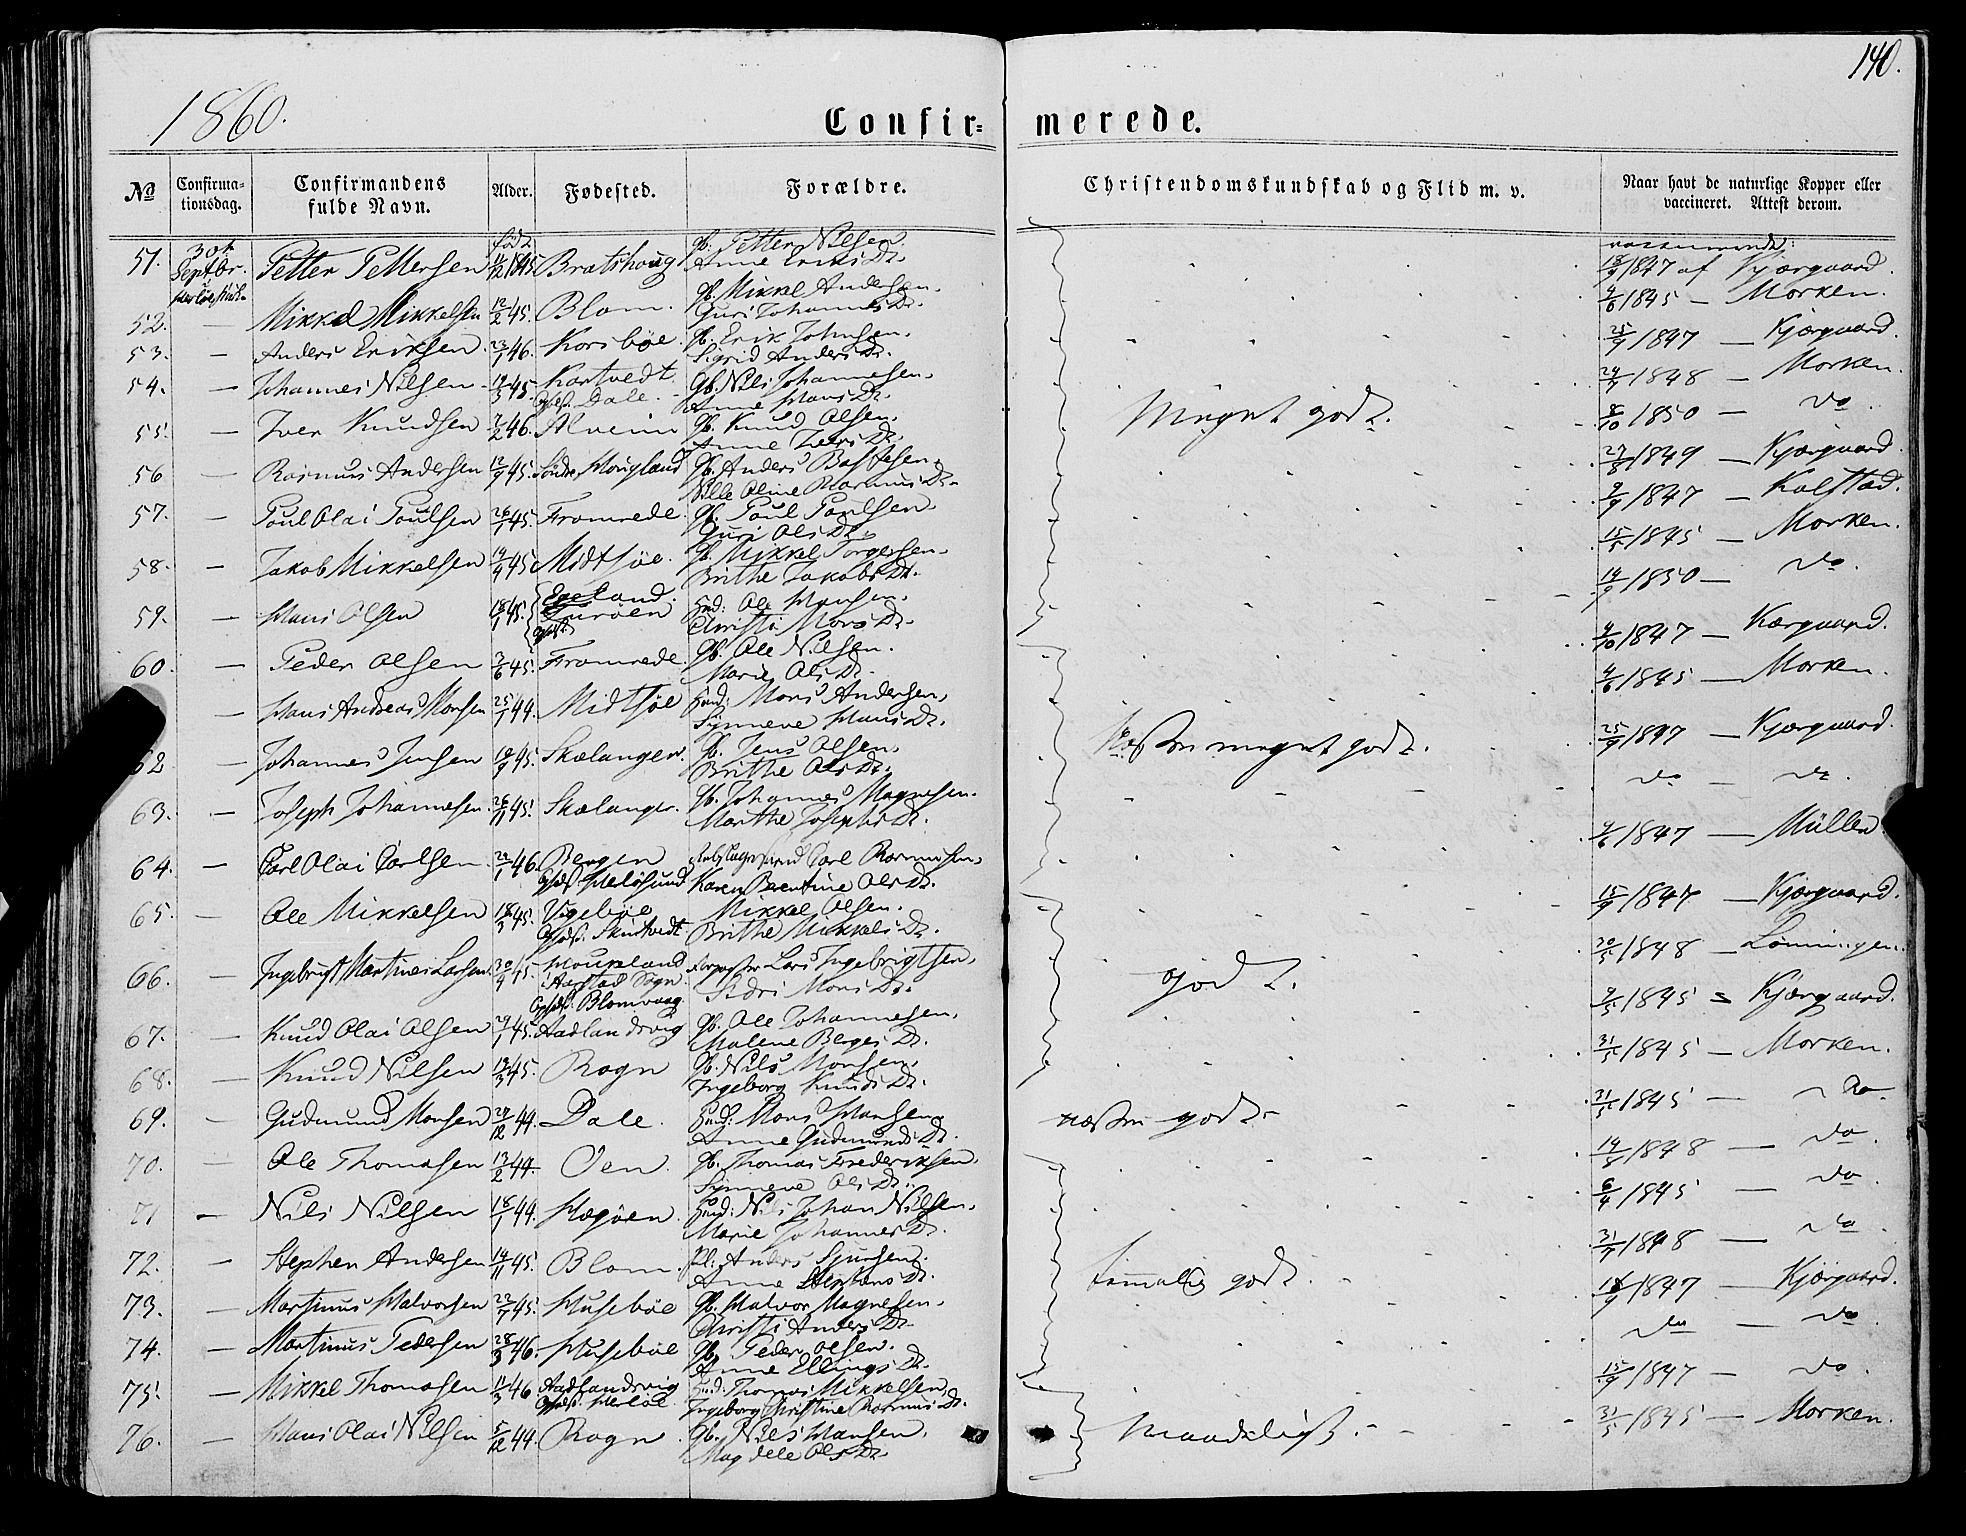 140.
1860.
Confir- merede.
No Confirmationsdag. Confirmandens fulde Navn. Alder. Fødested. Forældre. Christendomskundskab og Flid m. v. Naar havt de naturlige Kopper eller vaccineret. Attest derom.
51. 30t Septbr. Petter Pettersen født 11/12 1845. Bratshoug Gb. Petter Nilsen. Anne Eriks Dr. 18/9 1847 af Kjærgaard.
52. — Mikkel Mikkelsen 12/2 45. Blom. Gb. Mikkel Andersen. Guri Johannes Dr. 4/6 1845 — Morken.
53. — Anders Eriksen 23/1 46. Korsbøe. Gb. Erik Johnsen. Sigrid Anders Dr. 25/9 1847 — Kjærgaard.
54. — Johannes Nilsen 19/3 45. Kartvedt. Dale. Gb. Nils Johannesen. Anne Hans Dr. 24/9 1848 — Morken.
55. — Iver Knudsen 7/2 46. Alveim Gb. Knud Olsen. Anne Ivers Dr. Meget godt. 8/10 1850 — do.
56 — Rasmus Andersen 12/9 45. Søndre Hougland Gb. Anders Bastesen. Nille Oline Rasmus Dr. 27/8 1849 — Kjærgaard
57. — Poul Olai Poulsen 26/1 45. Fromrede. Gb. Poul Poulsen. Guri Ols Dr. 9/9 1847 — Kalstad.
58. — Jakob Mikkelsen 19/4 45 Midtsøe. Gb. Mikkel Torgersen. Brithe Jakobs Dr. 15/5 1845 — Morken.
59. — Hans Olsen 18/1 45. Egeland. Turøen Hmd: Ole Hansen. Christi Mons Dr. 19/9 1850 — do.
60. — Peder Olsen 3/6 45. Fromrede. Gb. Ole Nilsen. Marie Ols Dr. 4/10 1847 — Kærgaard.
— Hans Andreas Monsen 25/1 44. Midtsøe Hmd: Mons Andersen. Synneve Hans Dr. 4/6 1845 — Morken.
62 — Johannes Jensen 10/9 45. Skælanger. Gb. Jens Olsen. Brithe Ols Dr. Næsten meget godt. 25/9 1847 — Kjærgaard.
63. — Joseph Johannesen. 26/11 45. Skælanger. Gb. Johannes Magnesen. Marthe Josephs Dr. do — do.
64. — Carl Olai Carlsen. 20/1 46. Bergen Opfdst. Herløsund Carl Rasmusen. Karen Berentine Ols Dr. 4/6 1847 — Müller
65. — Ole Mikkelsen 18/3 45. Vigebøe Opfdst. Skurtvedt. Mikkel Olsen. Brithe Mikkels Dr. 15/9 1847 — Kjærgaard.
66. — Ingebrigt Martines Larsen. 30/4 45. Houkeland i Aarstad Sogn. Opfdst. Blomvaag Lars Ingebrigtsen. Sidri Mons Dr. godt. 30/5 1848 — Lønningen.
67. — Knud Olai Olsen 29/1 45. Aadlandsvig Gb. Ole Johannesen. Malene Berges Dr. 9/5 1845 = Kjærgaard.
68. — Knud Nilsen 13/3 45. Rogn Gb. Nils Monsen. Ingeborg Knuds Dr. 31/5 1845 — Morken.
69. — Gudmund Monsen 29/12 44. Dale. Hmd: Mons Hansen. Anne Gudmunds Dr. næsten godt. 31/5 1845 — do
70. — Ole Thomasen 13/2 44. Oen. Gb. Thomas Frederiksen. Synneve Ols Dr. 14/8 1848 — do.
71 — Nils Nilsen 18/1 44. Hagøen. Hmd: Nils Johan Nilsen. Marie Johannes Dr. 6/4 1845 — do.
72. — Stephen Andersen 14/11 45. Blom. Pl. Anders Sjursen. Anne Stephens Dr. temmelig godt. 31/7 1848 — do.
73. — Martinus Halvorsen 22/7 45. Husebøe Gb. Halvor Magnesen. Christi Anders Dr. 18/9 1847 — Kjærgaard.
74. — Martinus Pedersen 28/3 46. Husebøe Gb. Peder Olsen. Anne Ellings Dr. do — do.
75. — Mikkel Thomasen 11/3 46 Aadlandsvig Opfdst. Herløe. Hmd. Thomas Mikkelsen. Ingeborg Christine Rasmus Dr. 15/9 1847 — do.
76. — Hans Olai Nilsen 5/12 44. Rogn. Gb. Nils Hansen. Magdele Ols Dr. maadeligt. 31/5 1845 — Morken.